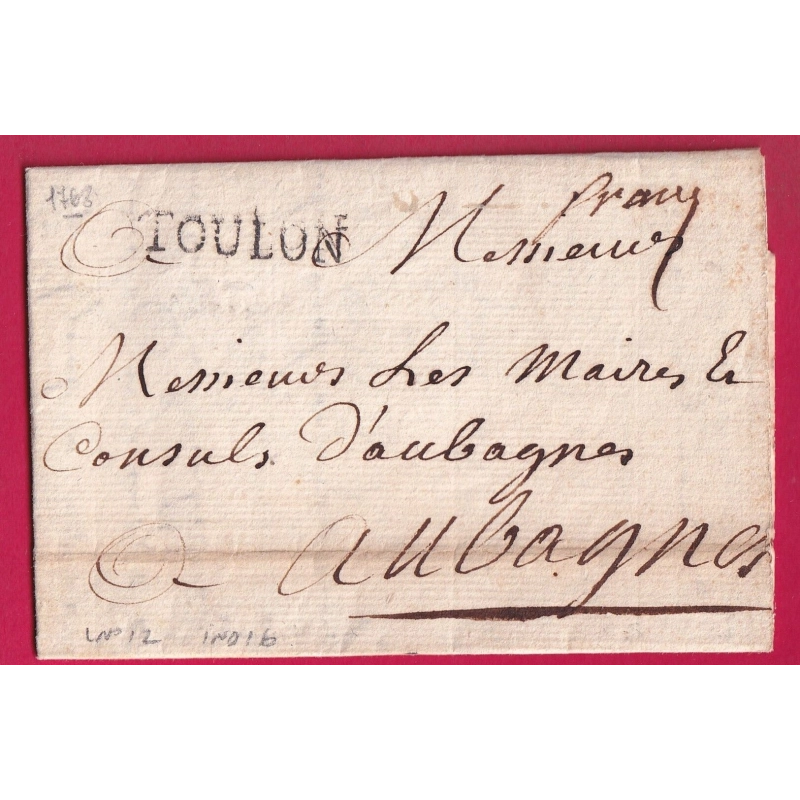 1768
franc
TOULON
A Messieurs
Messieurs Les Maires &
Consuls d'aubagnes
A aubagnes
LN°12 IND16